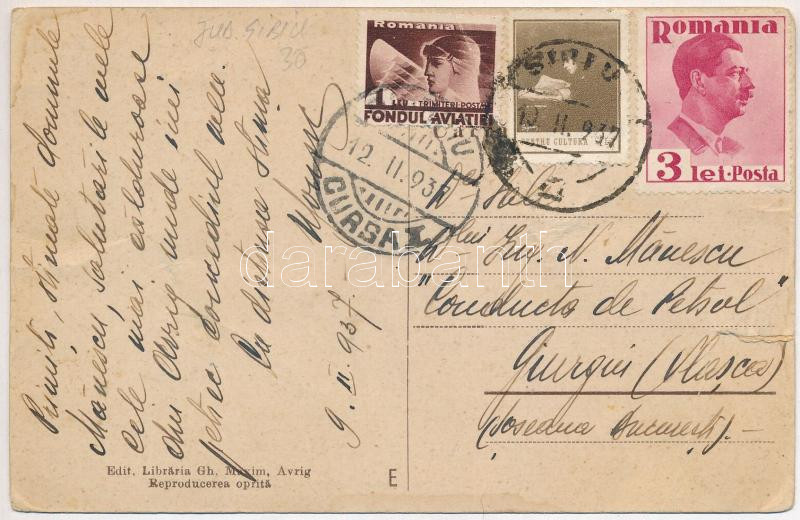 JUD. SIBIU
30
Romania
1 LEU
TRIMITERI-POSTA
FONDUL AVIATIEI
PENTRU CULTURA
Romania
3 lei·Posta
12. II. 937
CURSA
SIBIU
12. II. 937
Primiți, stimate domnule
Mănescu, salutările mele
cele mai călduroase
din Avrig unde îmi
petrec concediul
Cu distinsa stima
9. II. 937
Dlui Ing. N. Mănescu
"Conducta de Petrol"
Giurgiu (Vlașca)
(Șoseaua București) -
Edit. Librăria Gh. Maxim, Avrig
Reproducerea oprită
E
darabanth